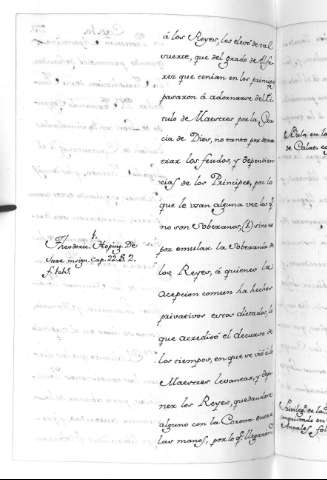 á los Reyes, los elevó de tal
suerte, que del grado de Alfe-
rez que tenian en los principios
pasaron á adornarse del Ti-
tulo de Maestres por la Gra-
cia de Dios, no tanto por demos-
trar los feudos, y dependen-
cias de los Principes, por lo
que le usan alguna vez los q.e
no son Soberanos, (1) sino
por emular la Soberania de
los Reyes, á quienes la
acepcion comun ha hecho
privativos estos dictados, lo
que acreditó el decurso de
los tiempos, en que se vió á los
Maestres levantar, y depo-
ner los Reyes, quedandose
alguno con la Corona entre
las manos, por lo q.e llegaron
1.
Frederic. Hoping. De
Jure insign. cap. 22. §. 2.
f.